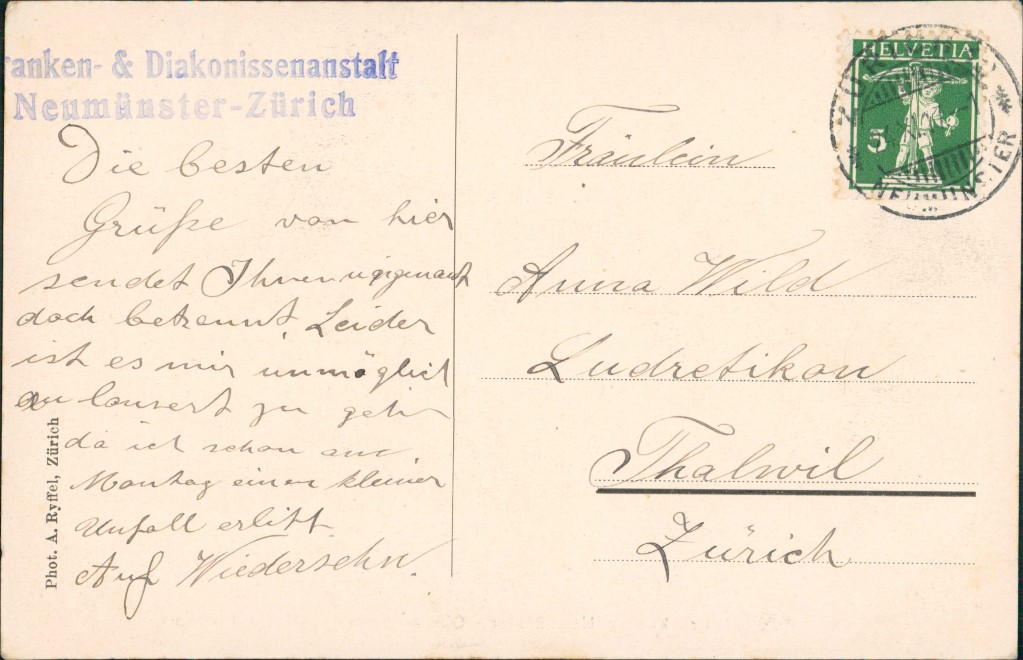 ranken- & Diakonissenanstalt
Neumünster-Zürich
Die besten
Grüße von hier
sendet Ihnen ungenannt
doch bekannt. Leider
ist es mir unmöglich
zu gehn
da ich schon am
Montag einen kleinen
Unfall erlitt.
Auf Wiedersehn.
Phot. A. Ryffel, Zürich
HELVETIA
5
NEUMÜNSTER
Fräulein
Anna Wild
Ludretikon
Thalwil
Zürich